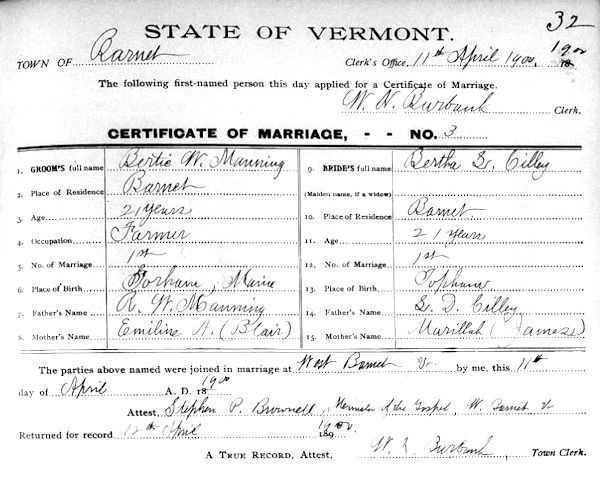 32
STATE OF VERMONT.
TOWN OF Barnet Clerk's Office, 11th April 1900, 1900 18
The following first-named person this day applied for a Certificate of Marriage.
W. H. Burbank Clerk.
CERTIFICATE OF MARRIAGE, - - NO. 3
1. GROOM'S full name Bertie W. Manning
2. Place of Residence Barnet
3. Age 21 years
4. Occupation Farmer
5. No. of Marriage 1st
6. Place of Birth Gorham, Maine
7. Father's Name R. W. Manning
8. Mother's Name Emiline A. (Blair)
9. BRIDE'S full name Bertha L. Cilley
(Maiden name, if a widow)
10. Place of Residence Barnet
11. Age 21 years
12. No. of Marriage 1st
13. Place of Birth Topham
14. Father's Name L. D. Cilley
15. Mother's Name Marillah (James)
The parties above named were joined in marriage at West Barnet Vt by me, this 11th
day of April A. D. 18 1900
Attest, Stephen P. Brownell, Minister of the Gospel, W. Barnet Vt
Returned for record 12th April 189 1900,
A TRUE RECORD, Attest, W. H. Burbank, Town Clerk.